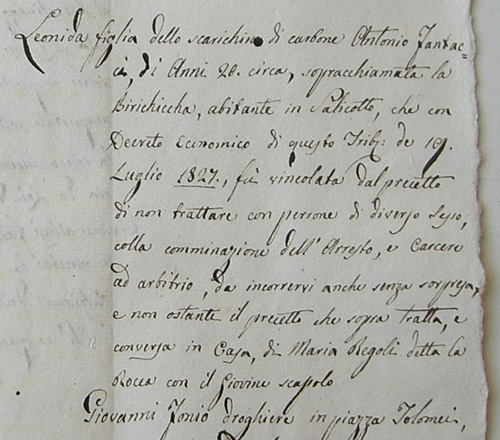 Leonida figlia dello scarichino di carbone Antonio Fantac=
ci, di Anni 20. circa, sopracchiamata la
Birichiccha, abitante in Salicotto, che con
Decreto Economico di questo Trib: de 19.
Luglio 1827., fù vincolata dal precetto
di non trattare con persone di diverso sesso,
colla comminazione dell'Arresto, e Carcere
ad arbitrio, da incorrervi anche senza sorpresa,
e non ostante il precetto che sopra tratta, e
conversa in Casa, di Maria Regoli detta la
Rocca con il Giovine scapolo
Giovanni Jonio droghiere in piazza Tolomei,